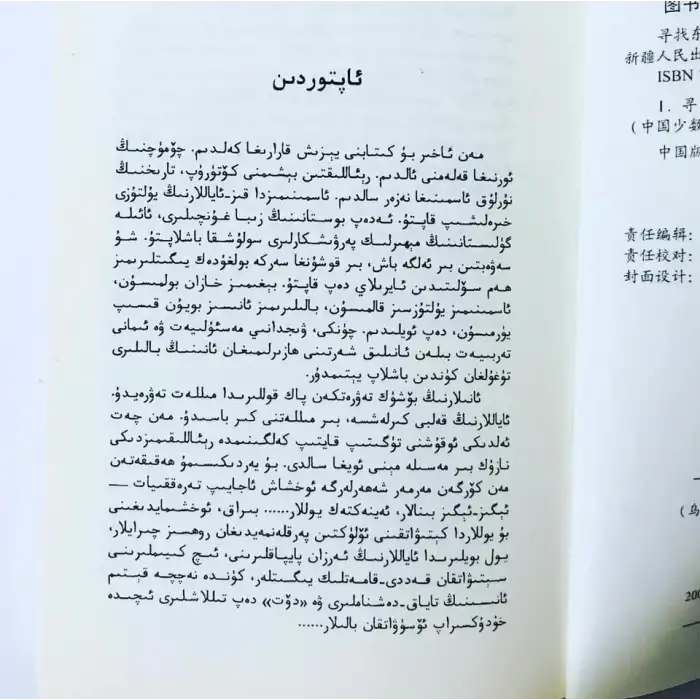 ئاپتوردىن
مەن ئاخىر بۇ كىتابنى يېزىش قارارىغا كەلدىم. چۆمۈچنىڭ
ئورنىغا قەلەمنى ئالدىم. رېئاللىقتىن بېشىمنى كۆتۈرۈپ، تارىخنىڭ
نۇرلۇق ئاسمىنىغا نەزەر سالدىم. ئاسمىنىمىزدا قىز-ئاياللارنىڭ يۇلتۇزى
خىرەلىشىپ قاپتۇ. ئەدەپ بوستانىنىڭ زىبا غۇنچىلىرى، ئائىلە
گۈلىستانىنىڭ مېھىرلىك پەرۋىشكارلىرى سولۇشقا باشلاپتۇ. شۇ
سەۋەبتىن بىر ئەلگە باش، بىر قوشۇنغا سەركە بولغۇدەك يىگىتلىرىمىز
ھەم سۆلىتىدىن ئايرىلاي دەپ قاپتۇ. بېغىمىز خازان بولمىسۇن،
ئاسمىنىمىز يۇلتۇزسىز قالمىسۇن، بالىلىرىمىز ئانىسىز بويۇن قىسىپ
يۈرمىسۇن، دەپ ئويلىدىم. چۈنكى، ۋىجدانىي مەسئۇلىيەت ۋە ئىمانى
تەربىيەت بىلەن ئانىلىق شەرتىنى ھازىرلىمىغان ئانىنىڭ بالىلىرى
تۇغۇلغان كۈندىن باشلاپ يېتىمدۇر.
ئانىلارنىڭ بۆشۈك تەۋرەتكەن پاك قوللىرىدا مىللەت تەۋرەيدۇ.
ئاياللارنىڭ قەلبى كىرلەشسە، بىر مىللەتنى كىر باسىدۇ. مەن چەت
ئەلدىكى ئوقۇشنى تۈگىتىپ قايتىپ كەلگىنىمدە رېئاللىقىمىزدىكى
نازۇك بىر مەسىلە مېنى ئويغا سالدى. بۇ يەردىكىسىمۇ ھەقىقەتەن
مەن كۆرگەن مەرمەر شەھەرلەرگە ئوخشاش ئاجايىپ تەرەققىيات —
ئېگىز-ئېگىز بىنالار، ئەينەكتەك يوللار...... بىراق، ئوخشىمايدىغىنى
بۇ يوللاردا كېتىۋاتقىنى ئۆلۈكتىن پەرقلەنمەيدىغان روھسىز چىرايلار،
يول بويلىرىدا ئاياللارنىڭ ئەرزان پايپاقلىرىنى، ئىچ كىيىملىرىنى
سېتىۋاتقان قەددى-قامەتلىك يىگىتلەر، كۈندە نەچچە قېتىم
ئانىسىنىڭ تاياق-دەشناملىرى ۋە «دۆت» دەپ تىللاشلىرى ئىچىدە
خۇدۈكسىراپ ئۆسۈۋاتقان بالىلار......
图书
寻找东
新疆人民出
ISBN
Ⅰ. 寻
(中国少数
中国版
责任编辑:
责任校对:
封面设计:
(乌
200